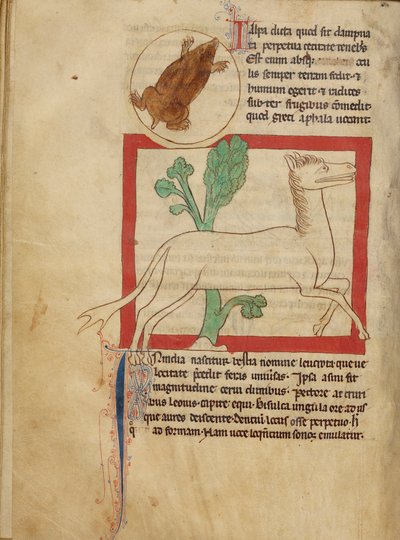 Talpa dicta quod sit dampna
ta perpetua cecitate tenebris
Est enim absque ocu
lis semper terram fodit ⁊
humum egerit ⁊ radices
subter frugibus comedit
quod greci aphala uocant.
In india nascitur bestia nomine leucrota que ue
locitate precedit feras uniuersas. Ipsa asini fit
magnitudine cerui clunibus. Pectore ac cruri
bus leonis. capite equi. Bisulca ungula ore ad us
que aures descente. Dentium locus osse perpetuo. h
ad formam. Nam uoce loquentium sonos emulatur.